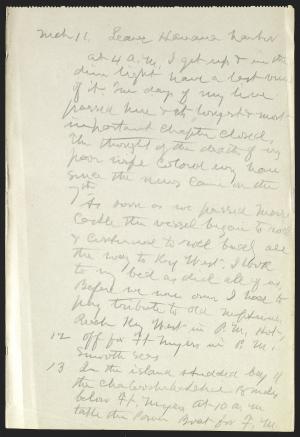 Mch 11. Leave Havana harbor
at 4 a.m. I get up & in the
dim light have a last view
of it. One day of my life
passed here & its longest & most
important chapter closed.
The thought of the death of my
poor wife colored every hour
since the news came on the
9th
As soon as we passed Morro
Castle the vessel began to roll
& continued to roll badly all
the way to Key West. I took
to my bed as did all of us.
Before we were over I had to
pay tribute to old Neptune.
Reach Key West in P.M. Hot.
12 off for Ft Myers in P.M.
Smooth sea
13 In the island studded bay of
the
below Ft. Myers at 10 a.m.
take the Power Boat for F. M.